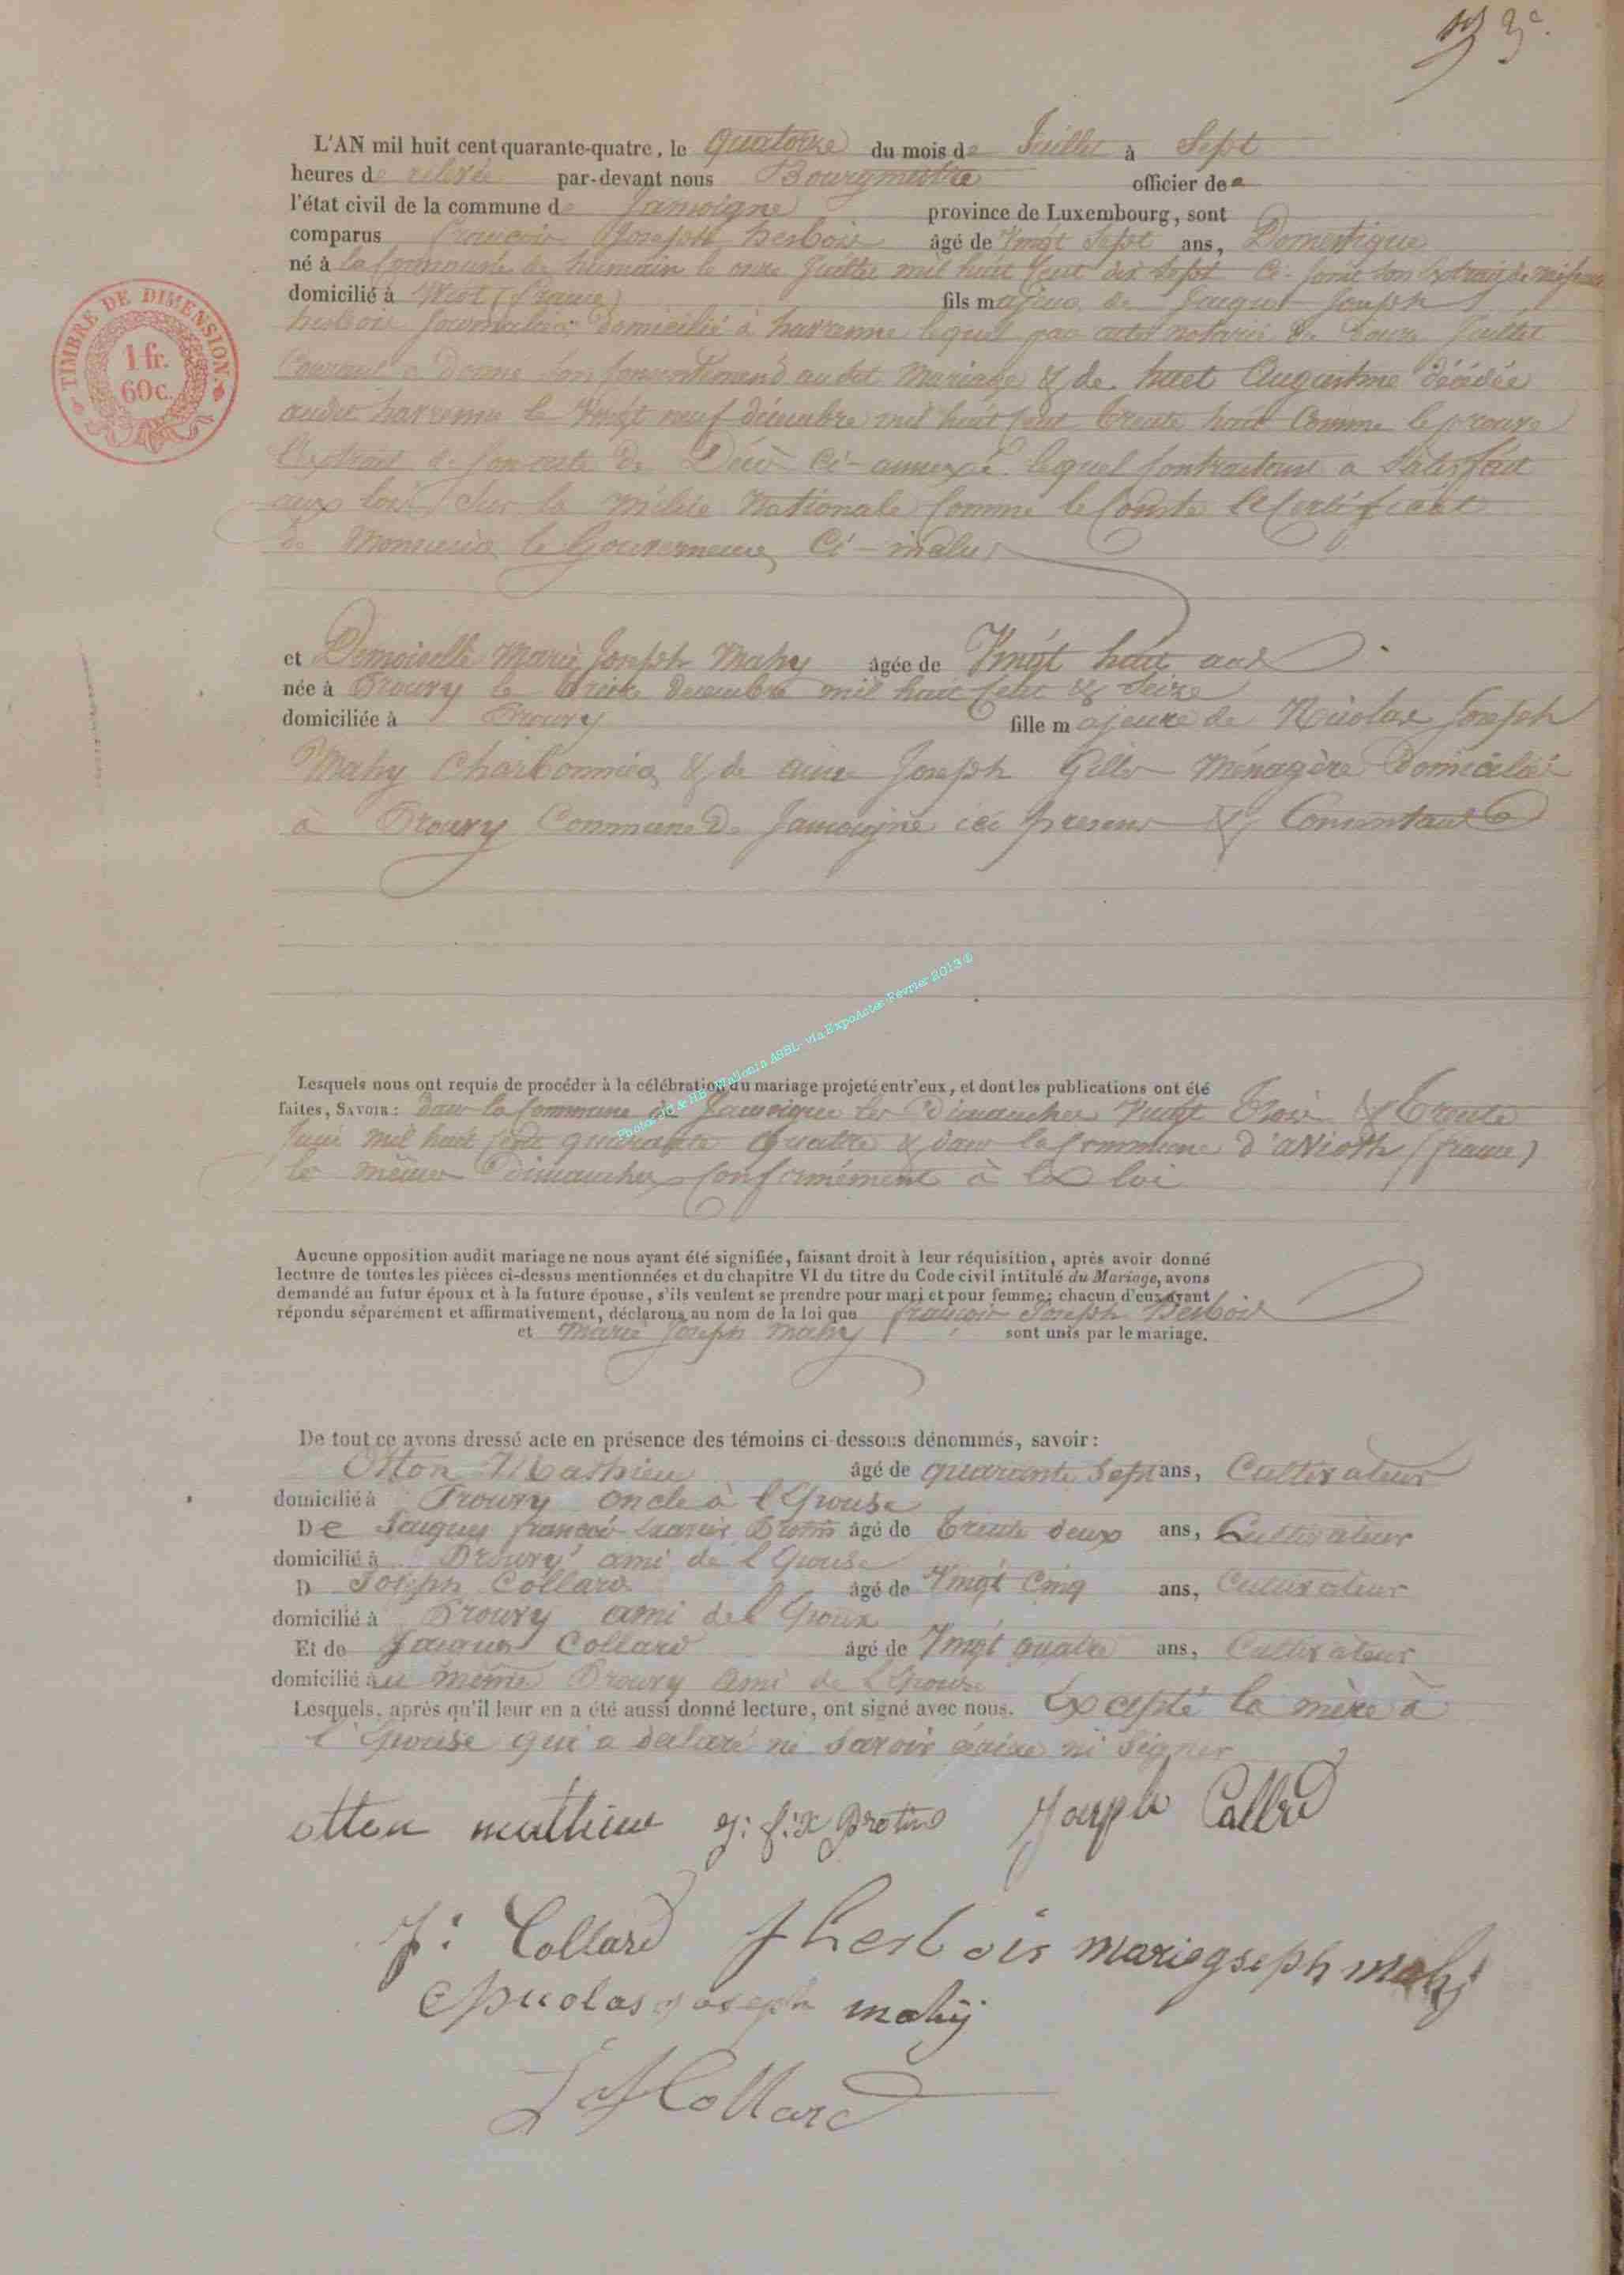 3e.
TIMBRE DE DIMENSION
1 fr.
60c.
L'AN mil huit cent quarante-quatre, le quatorze du mois de Juillet à Sept
heures de relevée par-devant nous Bourgmestre officier de
l'état civil de la commune de Jamoigne province de Luxembourg, sont
comparus françois Joseph herbois âgé de Vingt Sept ans, Domestique
né à la Commune de humain le onze Juillet mil huit Cent dix Sept Ci-joint son Extrait de naissance
domicilié à (france) fils majeur de Jacques Joseph
herbois Journalier domicilié à harsenne lequel par acte notarié du douze Juillet
Courant a donné son Consentement audit Mariage & de huet Augustine décédée
audit harsenne le Vingt neuf décembre mil huit Cent trente huit Comme le prouve
l'Extrait de son acte de Décès Ci-annexé lequel Contractant a Satisfait
aux lois Sur la milice Nationale Comme le Conste le Certificat
de Monsieur le Gouverneur Ci-inclus
et Demoiselle Marie Joseph Mahy âgée de Vingt huit ans
née à Prouvy le treize decembre mil huit Cent & Seize
domiciliée à Prouvy fille majeure de Nicolas Joseph
Mahy Charbonnier & de Joseph Gilles Ménagère Domiciliés
à Prouvy Commune de Jamoigne ici presens & Consentant
Photos JC & HB Wallonia ASBL via ExpoActes Février 2013 ©
Lesquels nous ont requis de procéder à la célébration du mariage projeté entr'eux, et dont les publications ont été
faites, SAVOIR: dans la Commune de Jamoigne les Dimanches Vingt trois & trente
Juin mil huit Cent quarante quatre & dans la Commune d'aVioth (france)
les mêmes dimanches Conformément à la loi
Aucune opposition audit mariage ne nous ayant été signifiée, faisant droit à leur réquisition, après avoir donné
lecture de toutes les pièces ci-dessus mentionnées et du chapitre VI du titre du Code civil intitulé du Mariage, avons
demandé au futur époux et à la future épouse, s'ils veulent se prendre pour mari et pour femme; chacun d'eux ayant
répondu séparément et affirmativement, déclarons au nom de la loi que françois Joseph Herbois
et Marie Joseph Mahy sont unis par le mariage.
De tout ce avons dressé acte en présence des témoins ci-dessous dénommés, savoir:
Otton Mathieu âgé de quarante Sept ans, Cultivateur
domicilié à Prouvy oncle à l'Epouse
De Jacques françois Protin âgé de trente deux ans, Cultivateur
domicilié à Prouvy ami de l'Epouse
D Joseph Collard âgé de Vingt Cinq ans, Cultivateur
domicilié à Prouvy ami de l'Epoux
Et de Jacques Collard âgé de Vingt quatre ans, Cultivateur
domicilié au même Prouvy ami de l'Epouse
Lesquels, après qu'il leur en a été aussi donné lecture, ont signé avec nous. Excepté la mère à
l'Epouse qui a déclaré ne savoir écrire ni signer
otton mathieu j: f: x Protin Joseph Collard
J: Collard f herbois marie joseph mahy
Nicolas joseph mahy
Collard